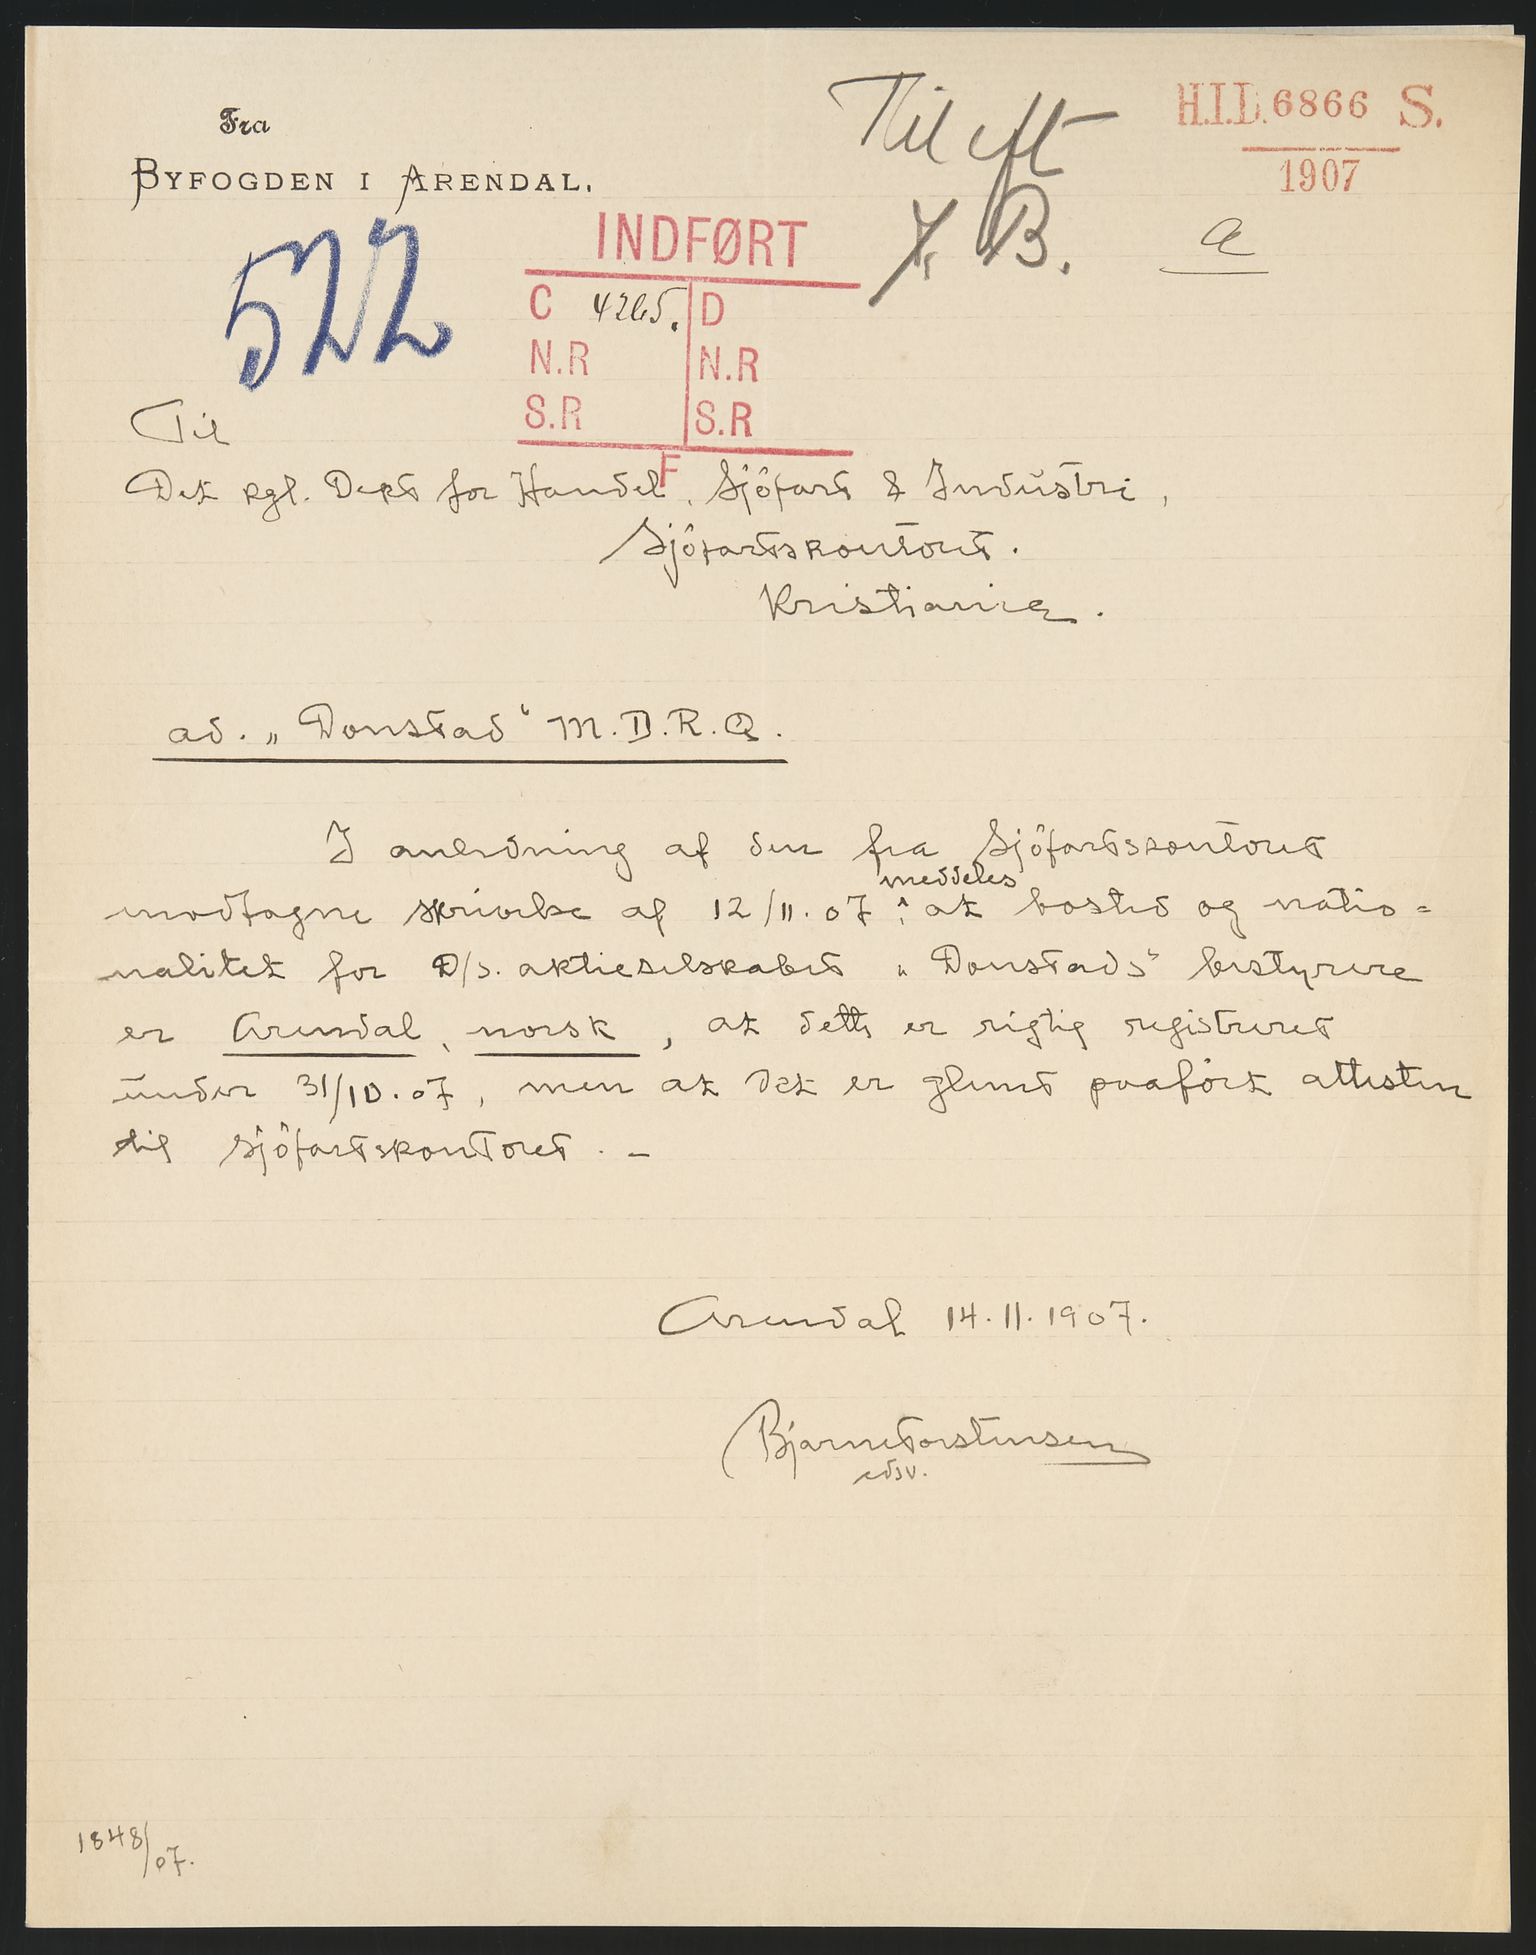 Fra
BYFOGDEN I ARENDAL.
Til eft
B.
H.I.D. 6866 S.
1907
a
522
INDFØRT
C 4265. D
N.R N.R
S.R S.R
F
Til
Det kgl. Dept for Handel, Sjöfart & Industri,
Sjöfartskontoret.
Kristiania.
ad. „Donstad“ M.D.R.Q.
I anledning af den fra Sjöfartskontoret
meddeles
modtagne skrivelse af 12/11.07, at bosted og natio=
nalitet for D/s. aktieselskabet „Donstads“ bestyrere
er Arendal, norsk, at dette er rigtig registreret
under 31/10.07, men at det er glemt paaført attesten
til sjöfartskontoret. –
Arendal 14.11.1907.
Bjarne Torstensen
edsv.
1848/07.